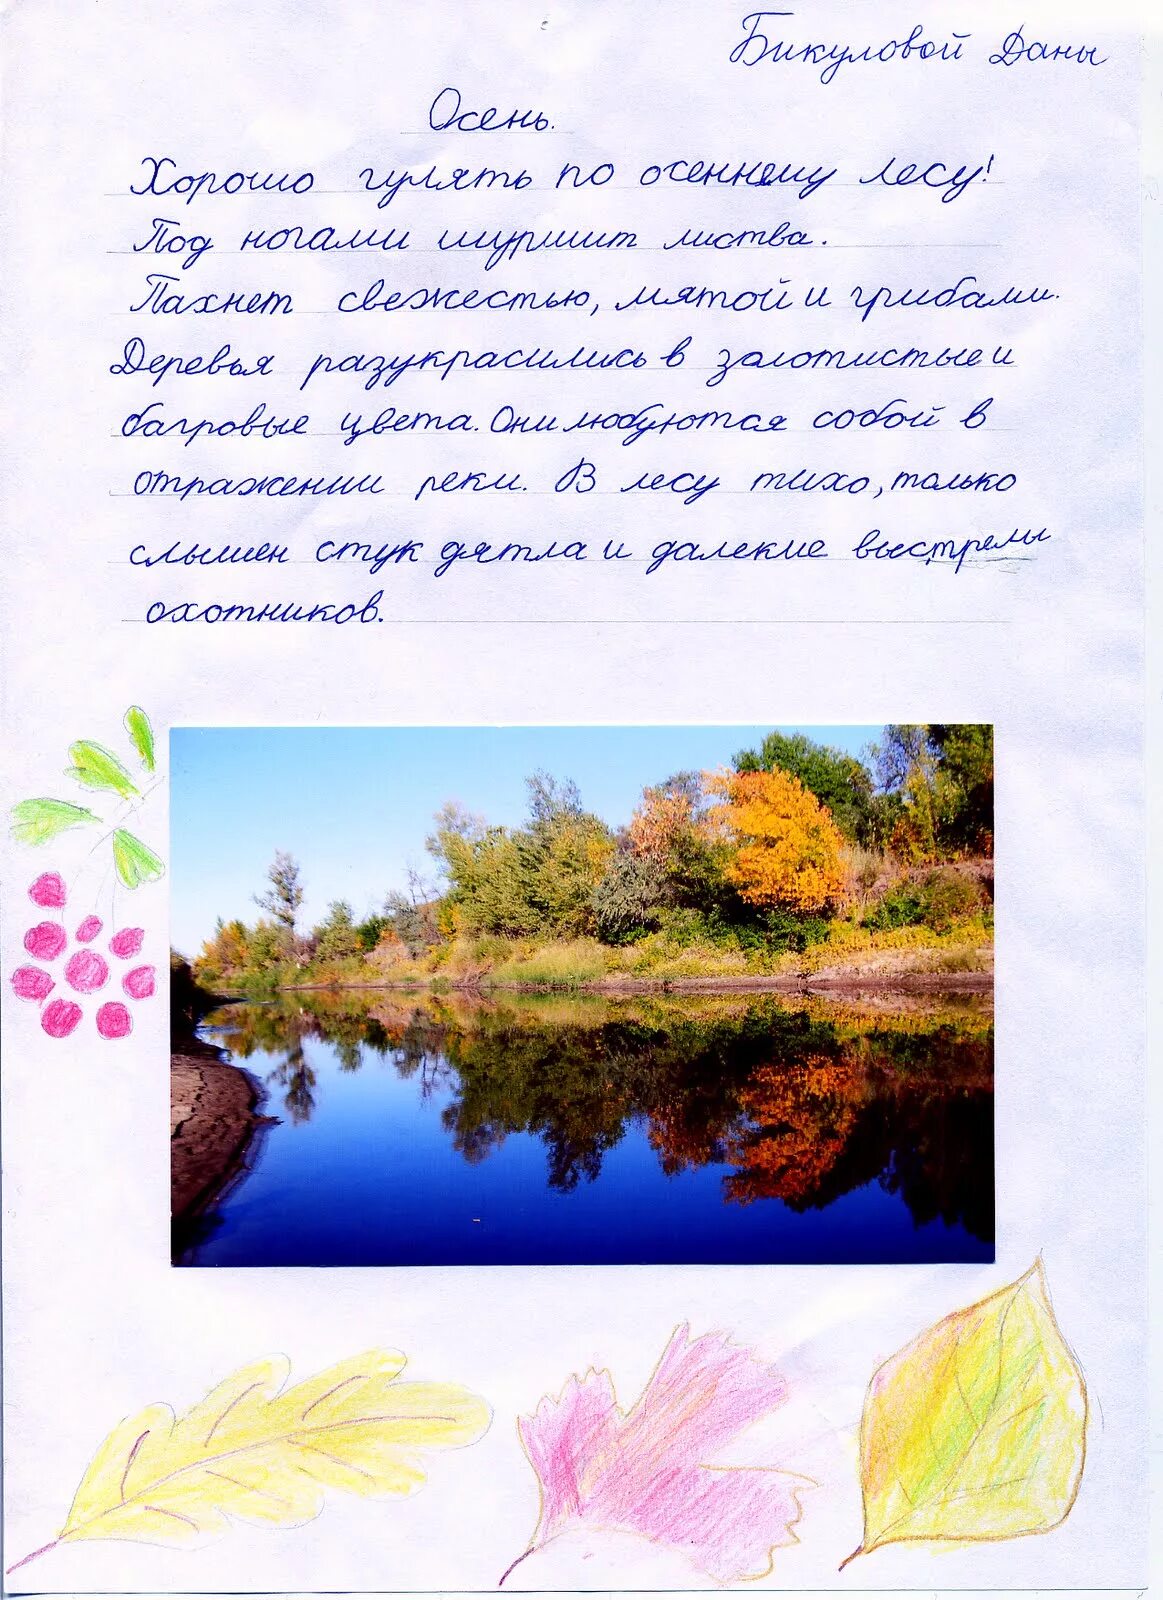 Бикуловой Даны
Осень.
Хорошо гулять по осеннему лесу!
Под ногами шуршит листва.
Пахнет свежестью, мятой и грибами.
Деревья разукрасились в золотистые и
багровые цвета. Они любуются собой в
отражении реки. В лесу тихо, только
слышен стук дятла и далекие выстрелы
охотников.